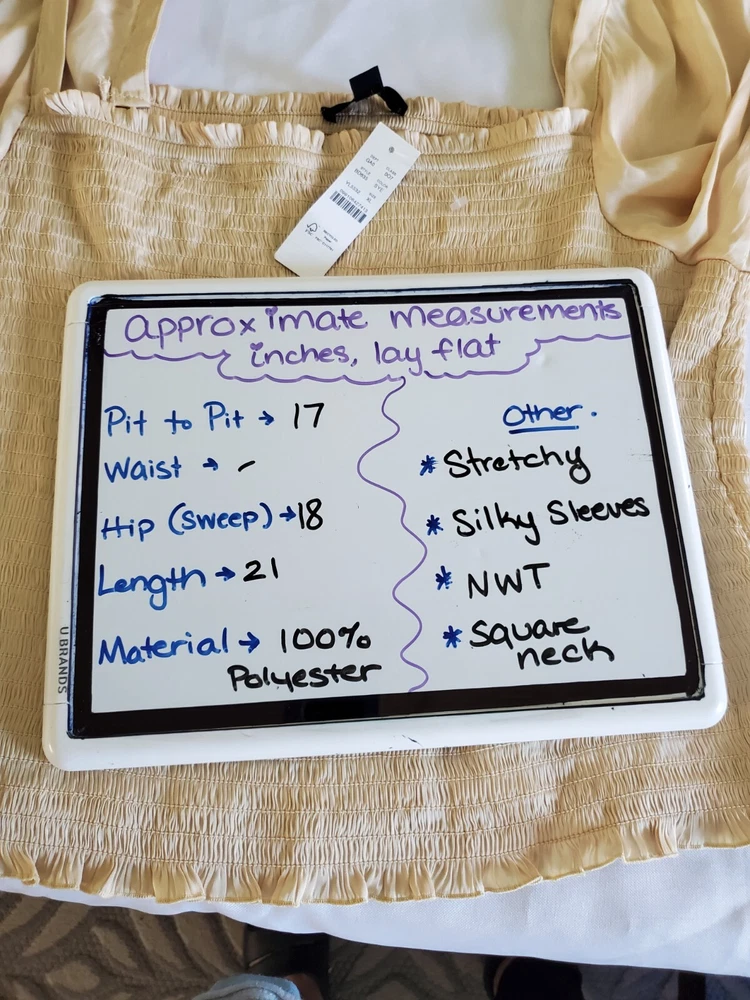 approximate measurements
inches, lay flat
Pit to Pit → 17
Waist → -
Hip (Sweep) → 18
Length → 21
Material → 100%
Polyester
Other.
* Stretchy
* Silky Sleeves
* NWT
* Square
neck
U BRANDS